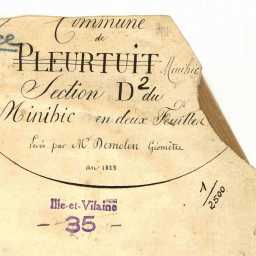 Commune
de
PLEURTUIT Minihic
Section D² du
Minihic en deux Feuilles
Levée par Mr Demolon Géomètre
an 1823
1/2500
Ille-et-Vilaine
- 35 -